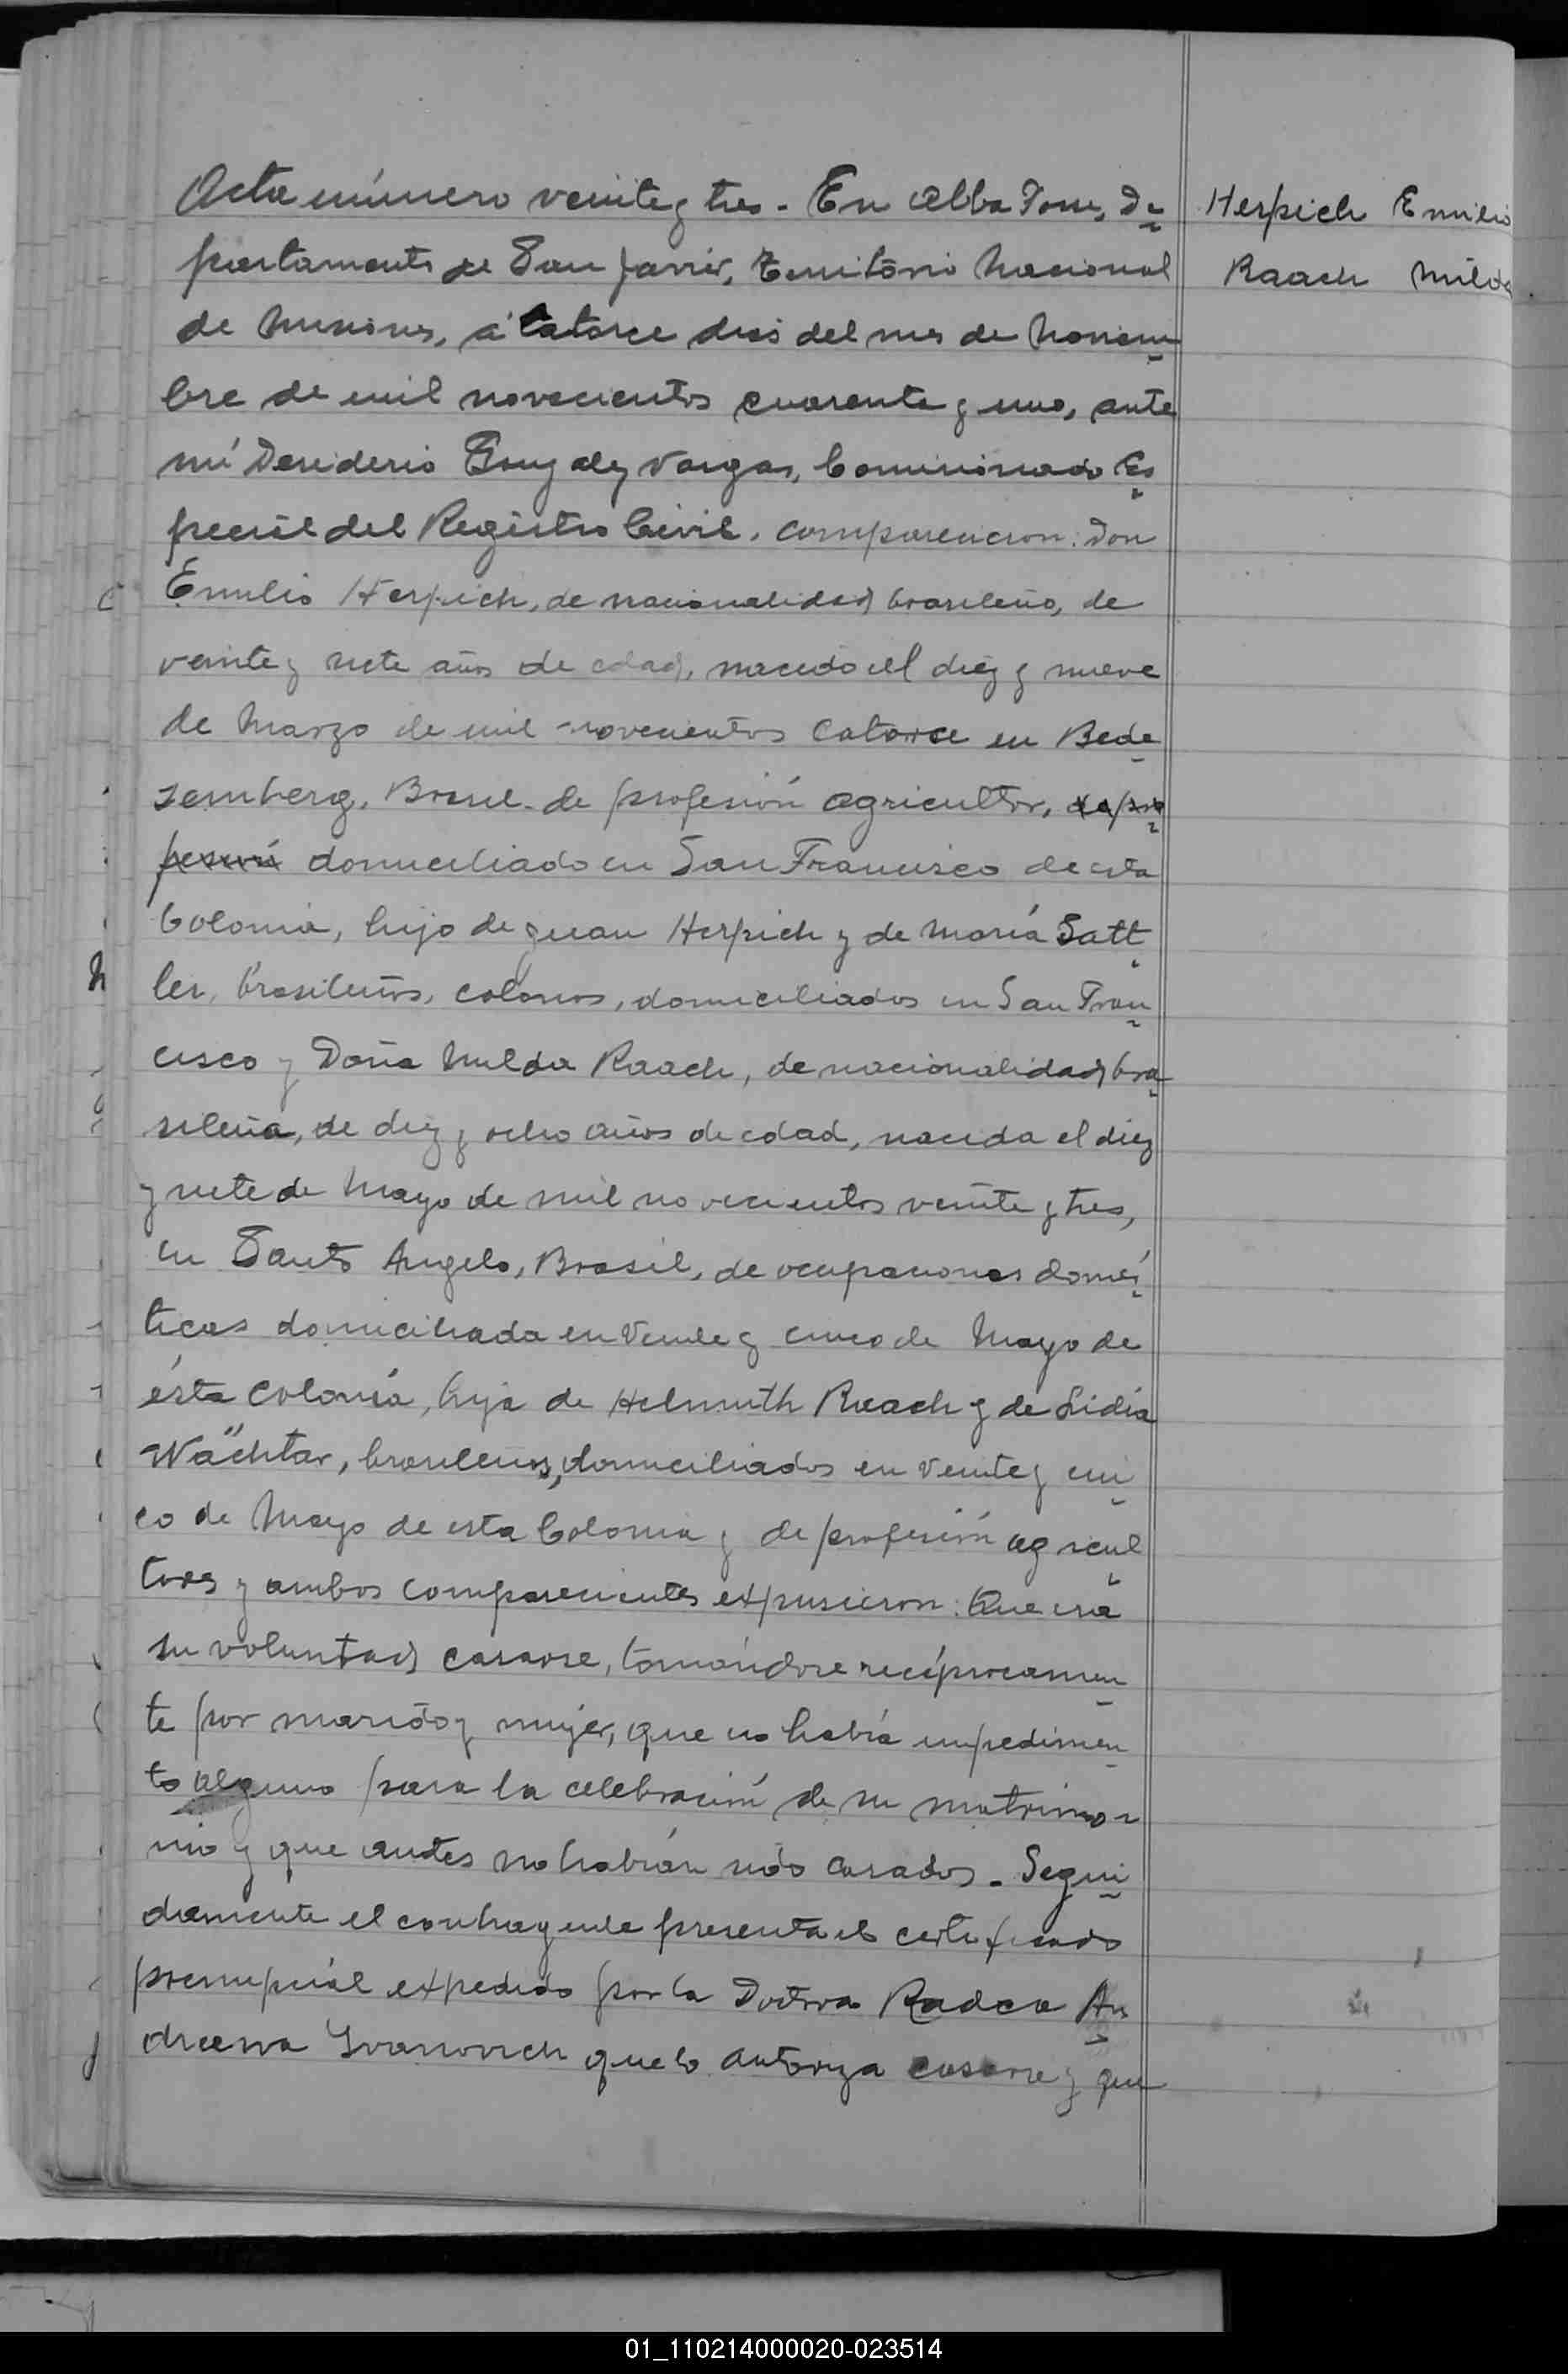 Acta número veinte y tres - En Alba Posse, De
Herpich Emilio
partamento de San Javier, Territorio Nacional
Raach Milda
de Misiones, á catorce dias del mes de Noviem
bre de mil novecientos cuarenta y uno, ante
mí Desiderio Gonzalez Vargas, Comisionado Es
pecial del Registro Civil, comparecieron: Don
Emilio Herpich, de nacionalidad brasileño, de
veinte y siete años de edad, nacido el diez y nueve
de Marzo de mil novecientos catorce en Bede
semberg, Brasil - de profesión agricultor, de pro
fesión domiciliado en San Francisco de esta
Colonia, hijo de Juan Herpich y de María Satt
ler, brasileños, colonos, domiciliados en San Fran
cisco y Doña Milda Raach, de nacionalidad bra
sileña, de diez y ocho años de edad, nacida el diez
y siete de Mayo de mil novecientos veinte y tres,
en Santo Angelo, Brasil, de ocupaciones domés
ticas domiciliada en Veinte y cinco de Mayo de
ésta Colonia, hija de Helmuth Raach y de Lidia
Wächtar, brasileños, domiciliados en Veinte y cin
co de Mayo de esta Colonia y de profesión agricul
tores y ambos comparecientes expusieron: Que era
su voluntad casarse, tomándose recíprocamen
te por marido y mujer, que no había impedimen
to alguno para la celebración de su matrimo-
nio y que antes no habían sido casados. Segui
damente el contrayente presenta el certificado
prenupcial expedido por la Doctora Radca An
dreewa Ivanovich que lo autoriza casarse y que
01_110214000020-023514